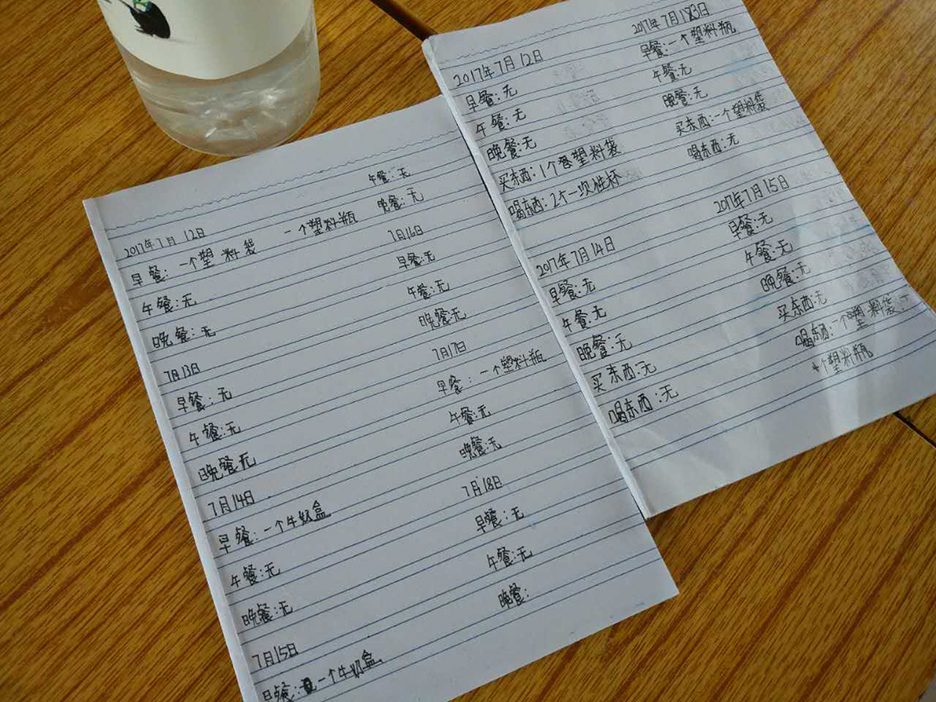 2017年7月12日
早餐：一个塑料袋 一个塑料瓶
午餐：无
晚餐：无
7月13日
早餐：无
午餐：无
晚餐无
7月14日
早餐：一个牛奶盒
午餐：无
晚餐：无
7月15日
早餐：一个牛奶盒
午餐：无
晚餐：无
7月16日
早餐：无
午餐：无
晚餐无
7月17日
早餐：一个塑料瓶
午餐：无
晚餐：无
7月18日
早餐：无
午餐：无
晚餐：
2017年7月12日
早餐：无
午餐：无
晚餐：无
买东西：1个塑料袋
喝东西：2个一次性杯
2017年7月13日
早餐：一个塑料瓶
午餐：无
晚餐：无
买东西：一个塑料袋
喝东西：无
2017年7月14日
早餐：无
午餐：无
晚餐：无
买东西：无
喝东西：无
2017年7月15日
早餐：无
午餐：无
晚餐：无
买东西：无
喝东西：一个塑料袋
个塑料瓶